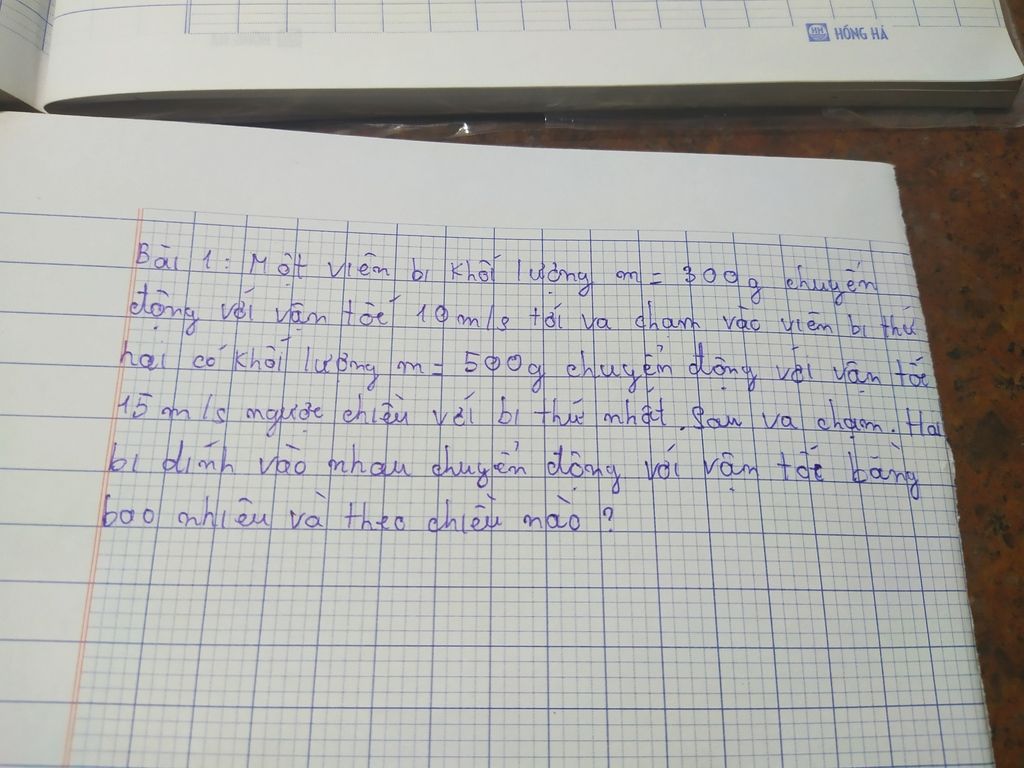 HH HỒNG HÀ
Bài 1: Một viên bi khối lượng m = 300g chuyển
động với vận tốc 10m/s tới va chạm vào viên bi thứ
hai có khối lượng m = 500g chuyển động với vận tốc
15 m/s ngược chiều với bi thứ nhất. Sau va chạm. Hai
bi dính vào nhau chuyển động với vận tốc bằng
bao nhiêu và theo chiều nào?